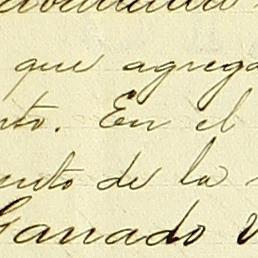 que agrega
nto. En el
ento de la
Ganado